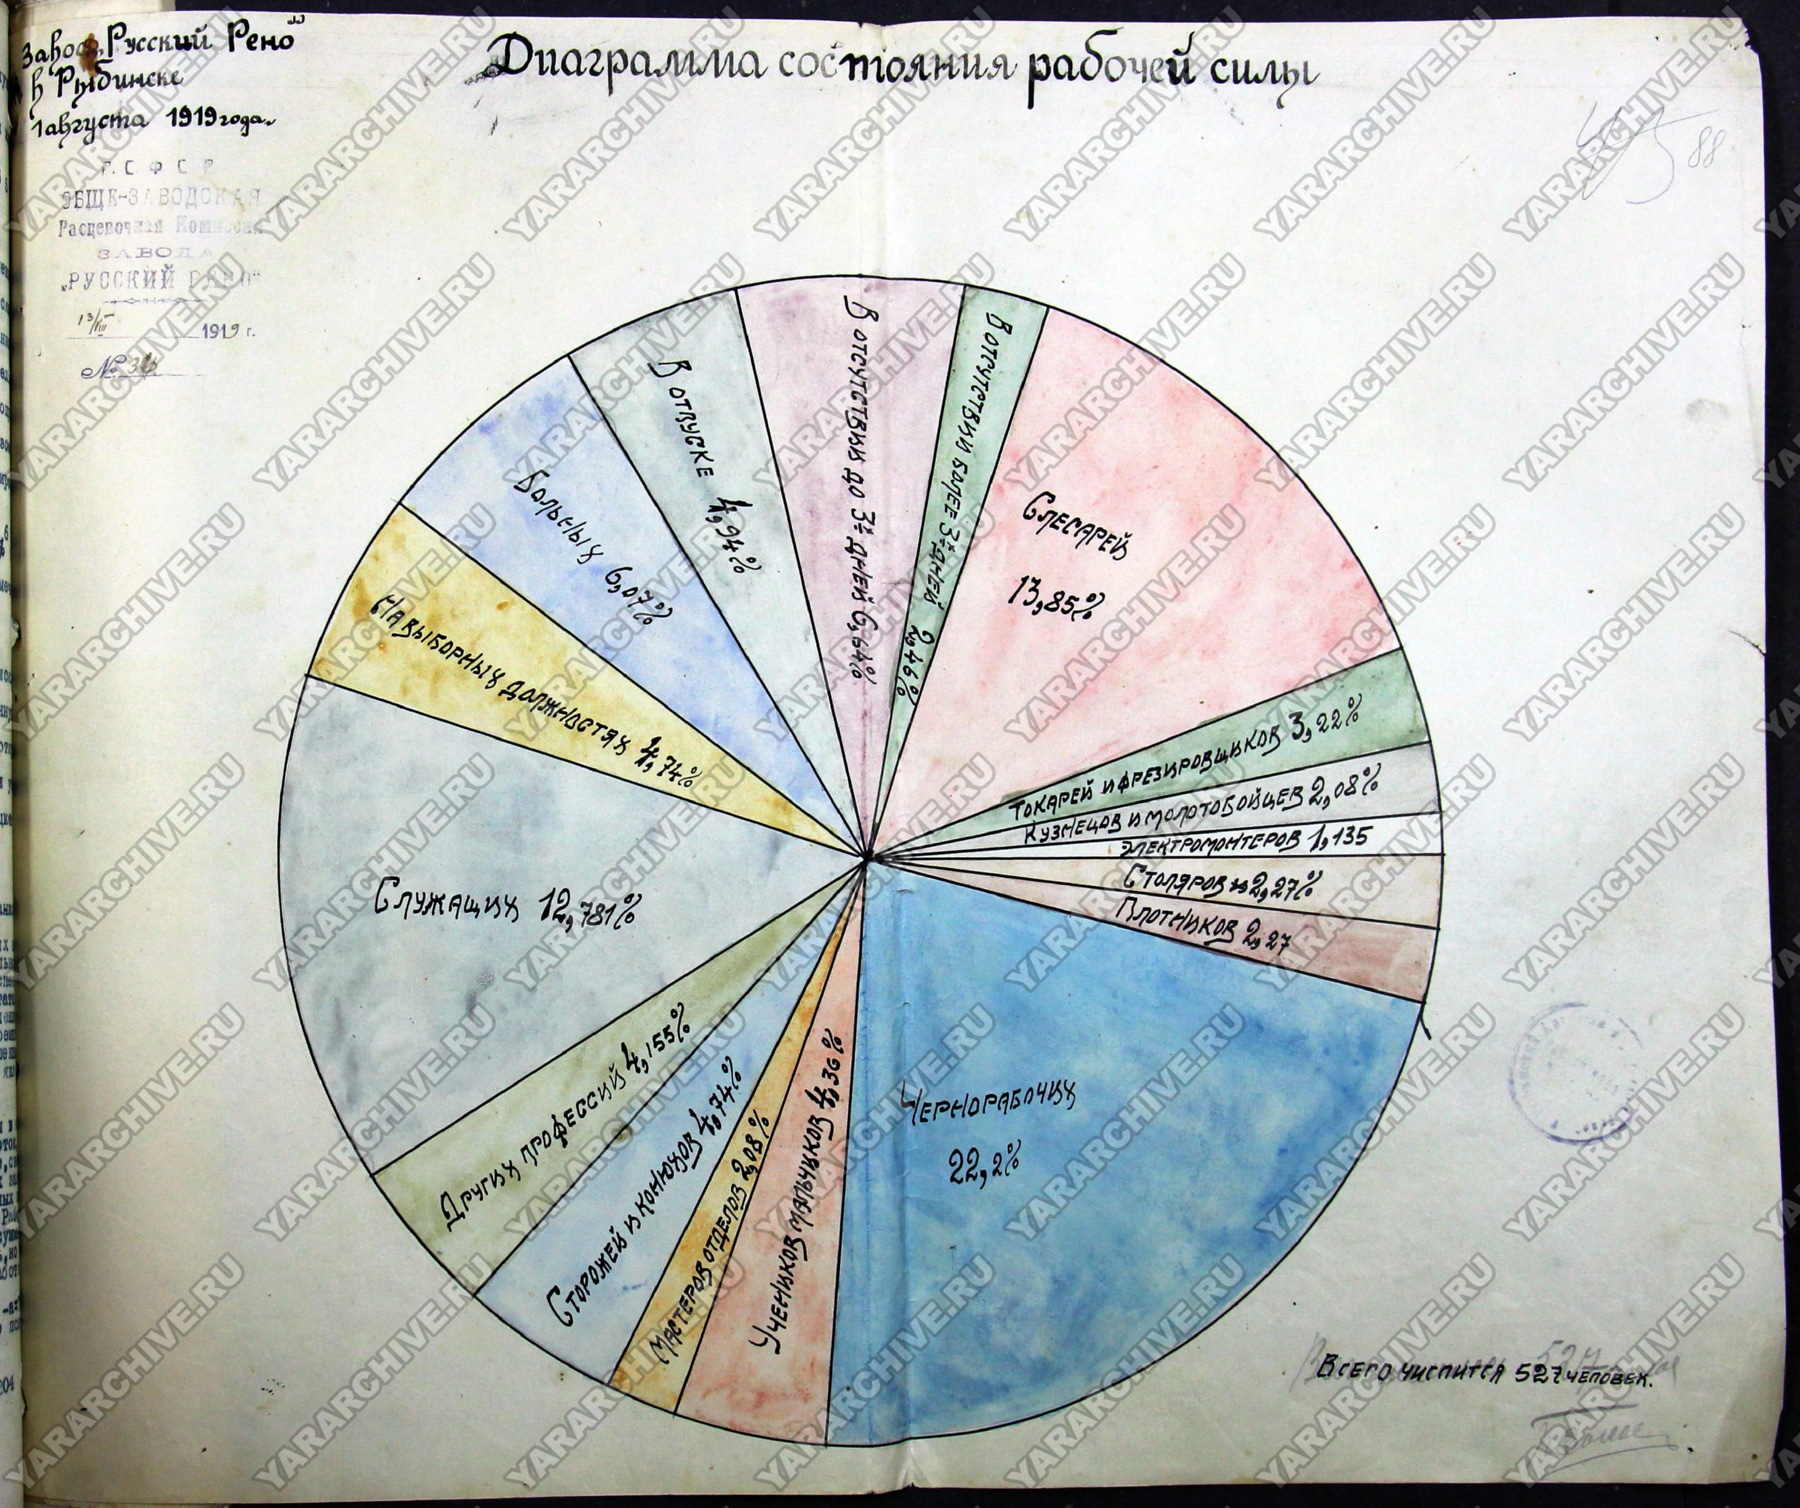 Завод „Русский Рено"
в Рыбинске
1 августа 1919 года.
Диаграмма состояния рабочей силы
88
Р. С Ф С Р
ОБЩЕ-ЗАВОДСКАЯ
Расценочная Комиссия
ЗАВОДА
„РУССКИЙ РЕНО"
13/VIII 1919 г.
№
В отсутствии до 3х дней 6,64%
В отсутствии более 3х дней 2,46%
Слесарей
13,85%
Токарей и фрезировщиков 3,22%
Кузнецов и молотобойцев 2,08%
Электромонтеров 1,135
Столяров 2,27%
Плотников 2,27
Чернорабочих
22,2%
Учеников мальчиков 4,36%
Мастеров отделов 2,08%
Сторожей и конюхов 4,74%
Других профессий 4,155%
Служащих 12,781%
На выборных должностях 4,74%
Больных 6,07%
В отпуске 4,94%
Всего числится 527 человек.
YARARCHIVE.RU